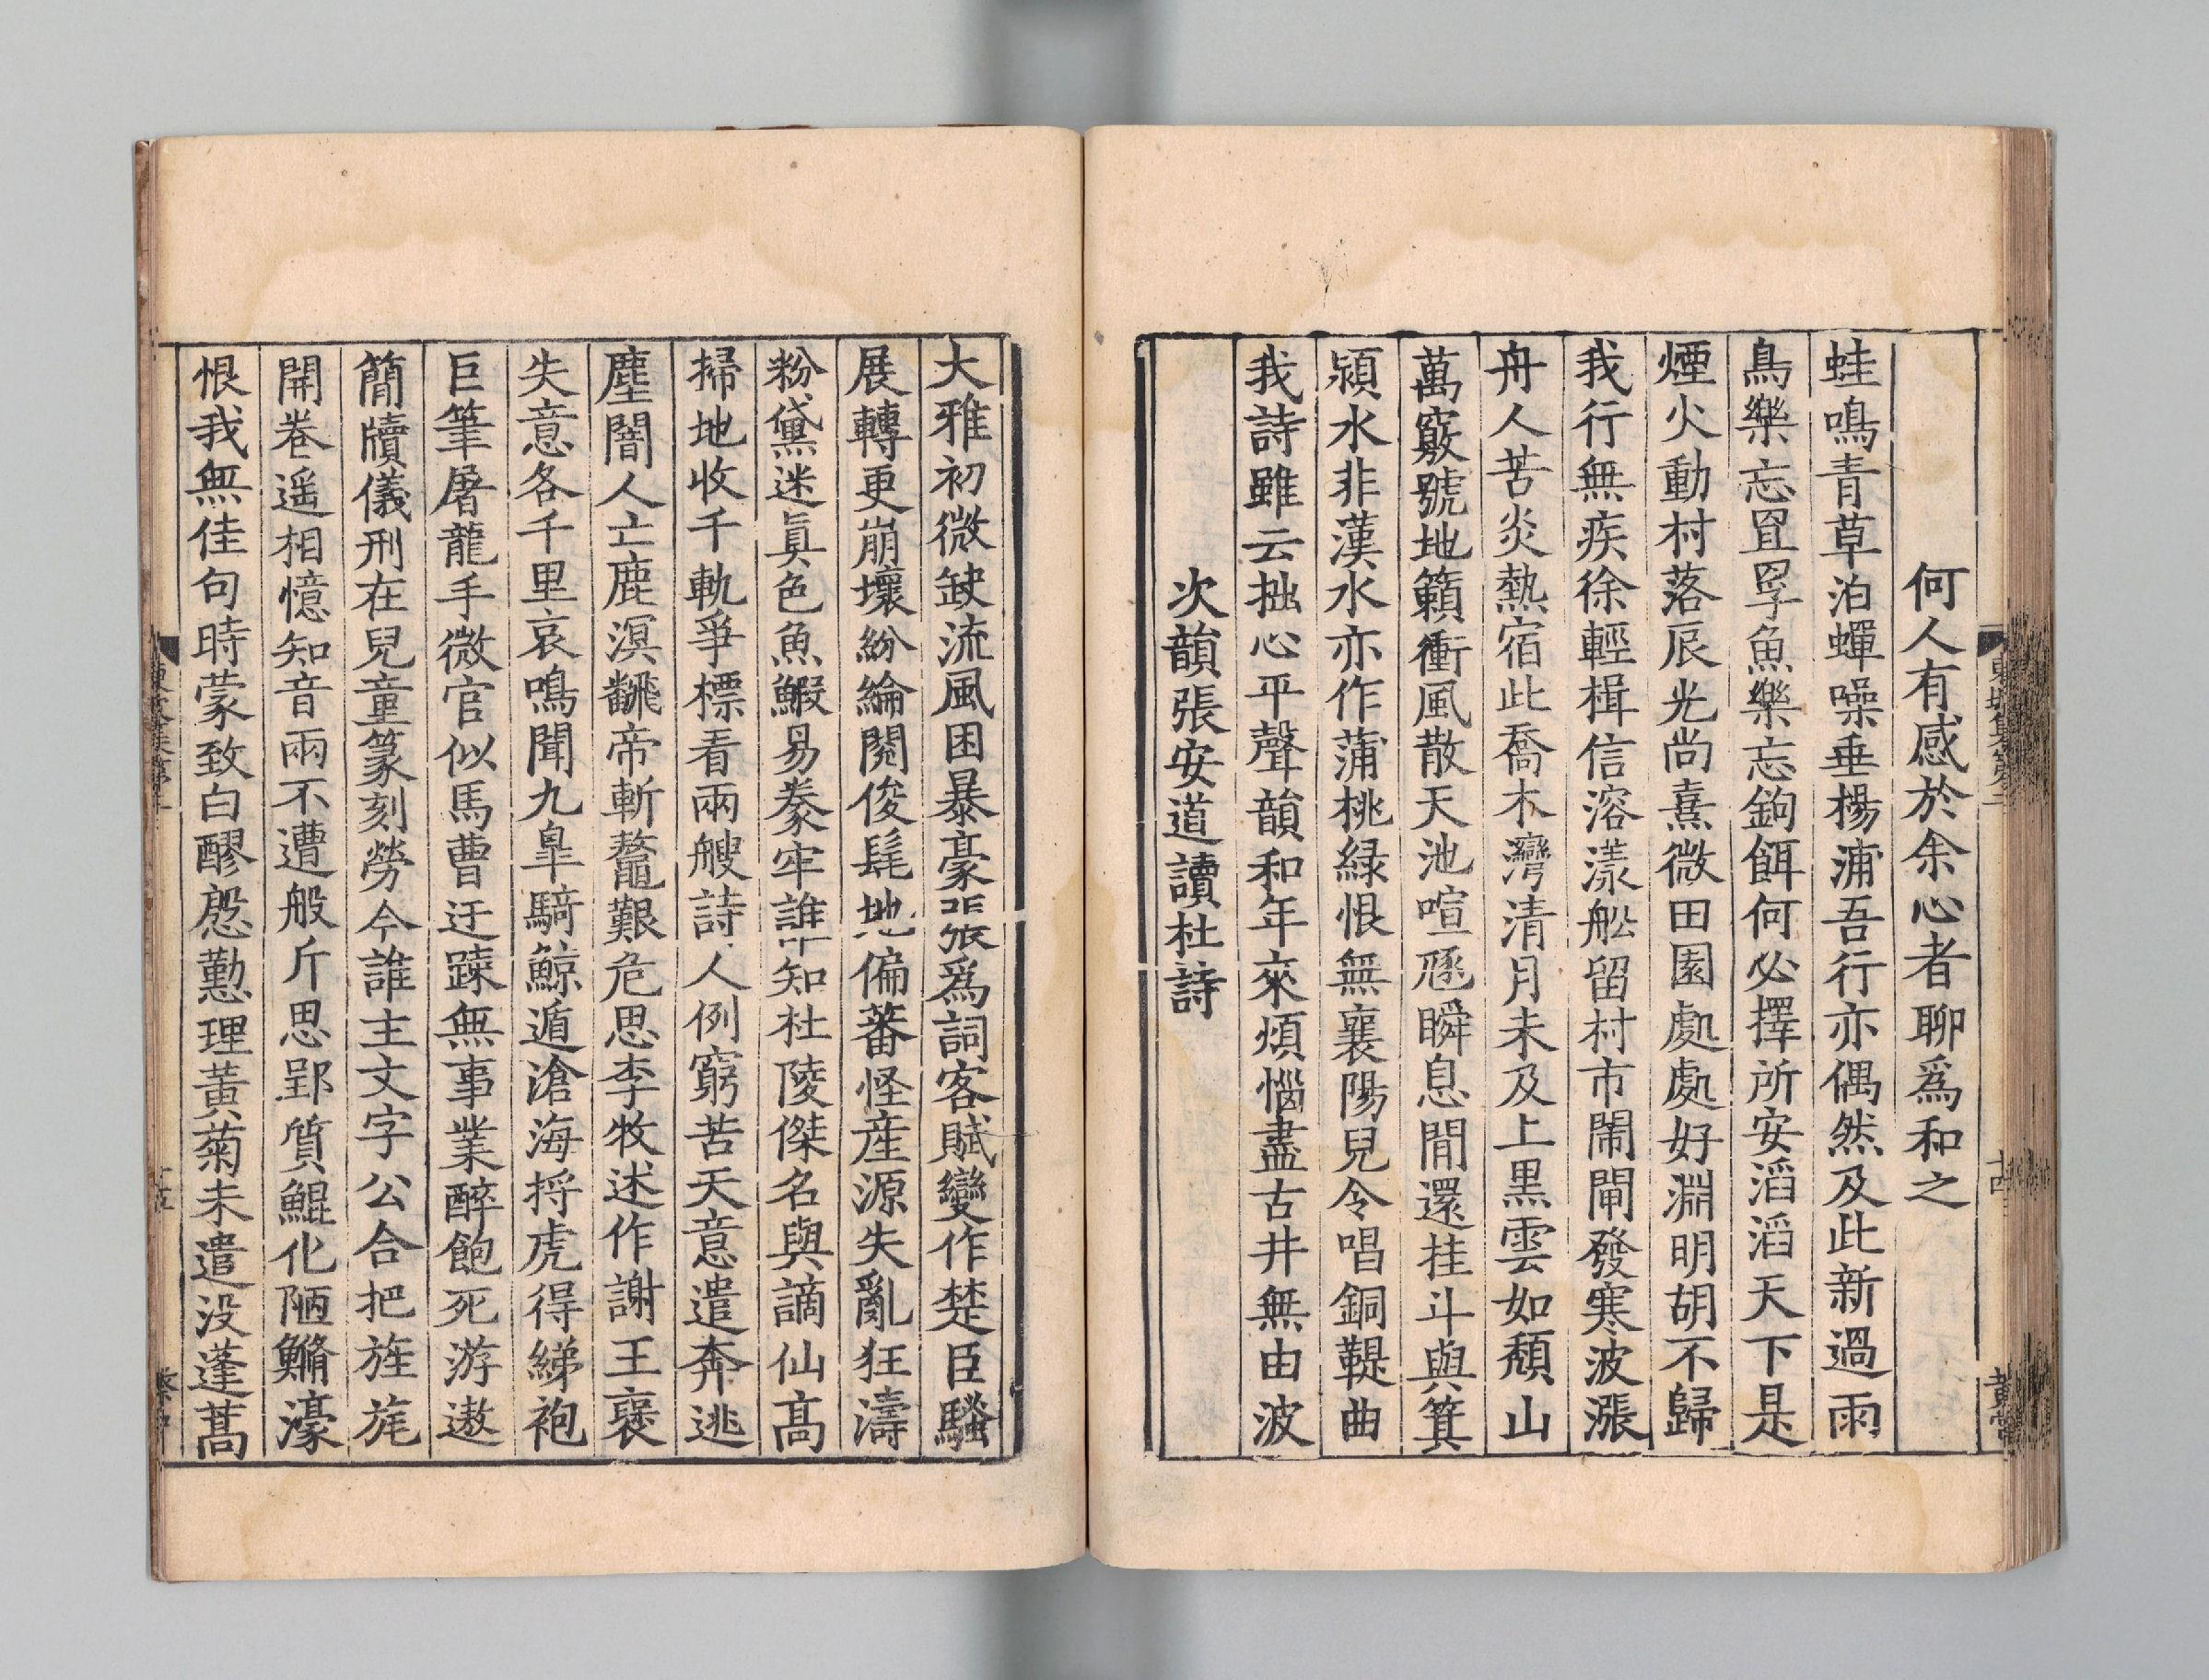 何人有感於余心者聊爲和之
蛙鳴青草泊蟬噪垂楊浦吾行亦偶然及此新過雨
鳥樂忘罝罦魚樂忘鉤餌何必擇所安滔滔天下是
煙火動村落辰光尚熹微田園處處好淵明胡不歸
我行無疾徐輕楫信溶漾舩留村市鬧閘發寒波漲
舟人苦炎熱宿此喬木灣清月未及上黑雲如頹山
萬竅號地籟衝風散天池喧豗瞬息間還挂斗與箕
潁水非漢水亦作蒲桃緑恨無襄陽兒令唱銅鞮曲
我詩雖云拙心平聲韻和年來煩惱盡古井無由波
次韻張安道讀杜詩
大雅初微缺流風困暴豪張爲詞客賦變作楚臣騷
展轉更崩壞紛綸閱俊髦地偏蕃怪産源失亂狂濤
粉黛迷眞色魚鰕易豢牢誰知杜陵傑名與謫仙高
掃地收千軌爭標看兩艘詩人例窮苦天意遣奔逃
塵闇人亡鹿溟飜帝斬鼇艱危思李牧述作謝王褒
失意各千里哀鳴聞九臯騎鯨遁滄海捋虎得綈袍
巨筆屠龍手微官似馬曹迂踈無事業醉飽死游遨
簡牘儀刑在兒童篆刻勞今誰主文字公合把旌旄
開卷遥相憶知音兩不遭般斤思郢質鯤化陋鯈濠
恨我無佳句時蒙致白醪慇懃理黃菊未遣没蓬蒿